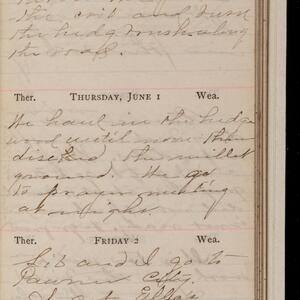 the crib and turn
the hedg brush along
the road.
Ther. THURSDAY, JUNE 1 Wea.
We haul in the hedge
wood until noon then
disced the millet
ground. We go
to prayr meeting
at night
Ther. FRIDAY 2 Wea.
Sis and I go to
Pawnee City.